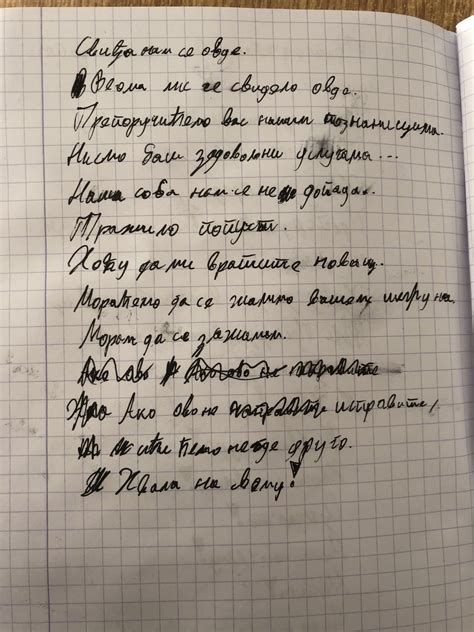 Свиђа нам се овде.
Веома ми се свидело овде.
Препоручићемо вас нашим познаницима.
Нисмо баш задовољни услугама...
Наша соба нам се не допада.
Тражимо попуст.
Хоћу да ми вратите новац.
Мораћемо да се жалимо вашем шефу на
Морам да се жалим.
Ако ово не исправите,
ићи ћемо негде друго.
Хвала на свему!